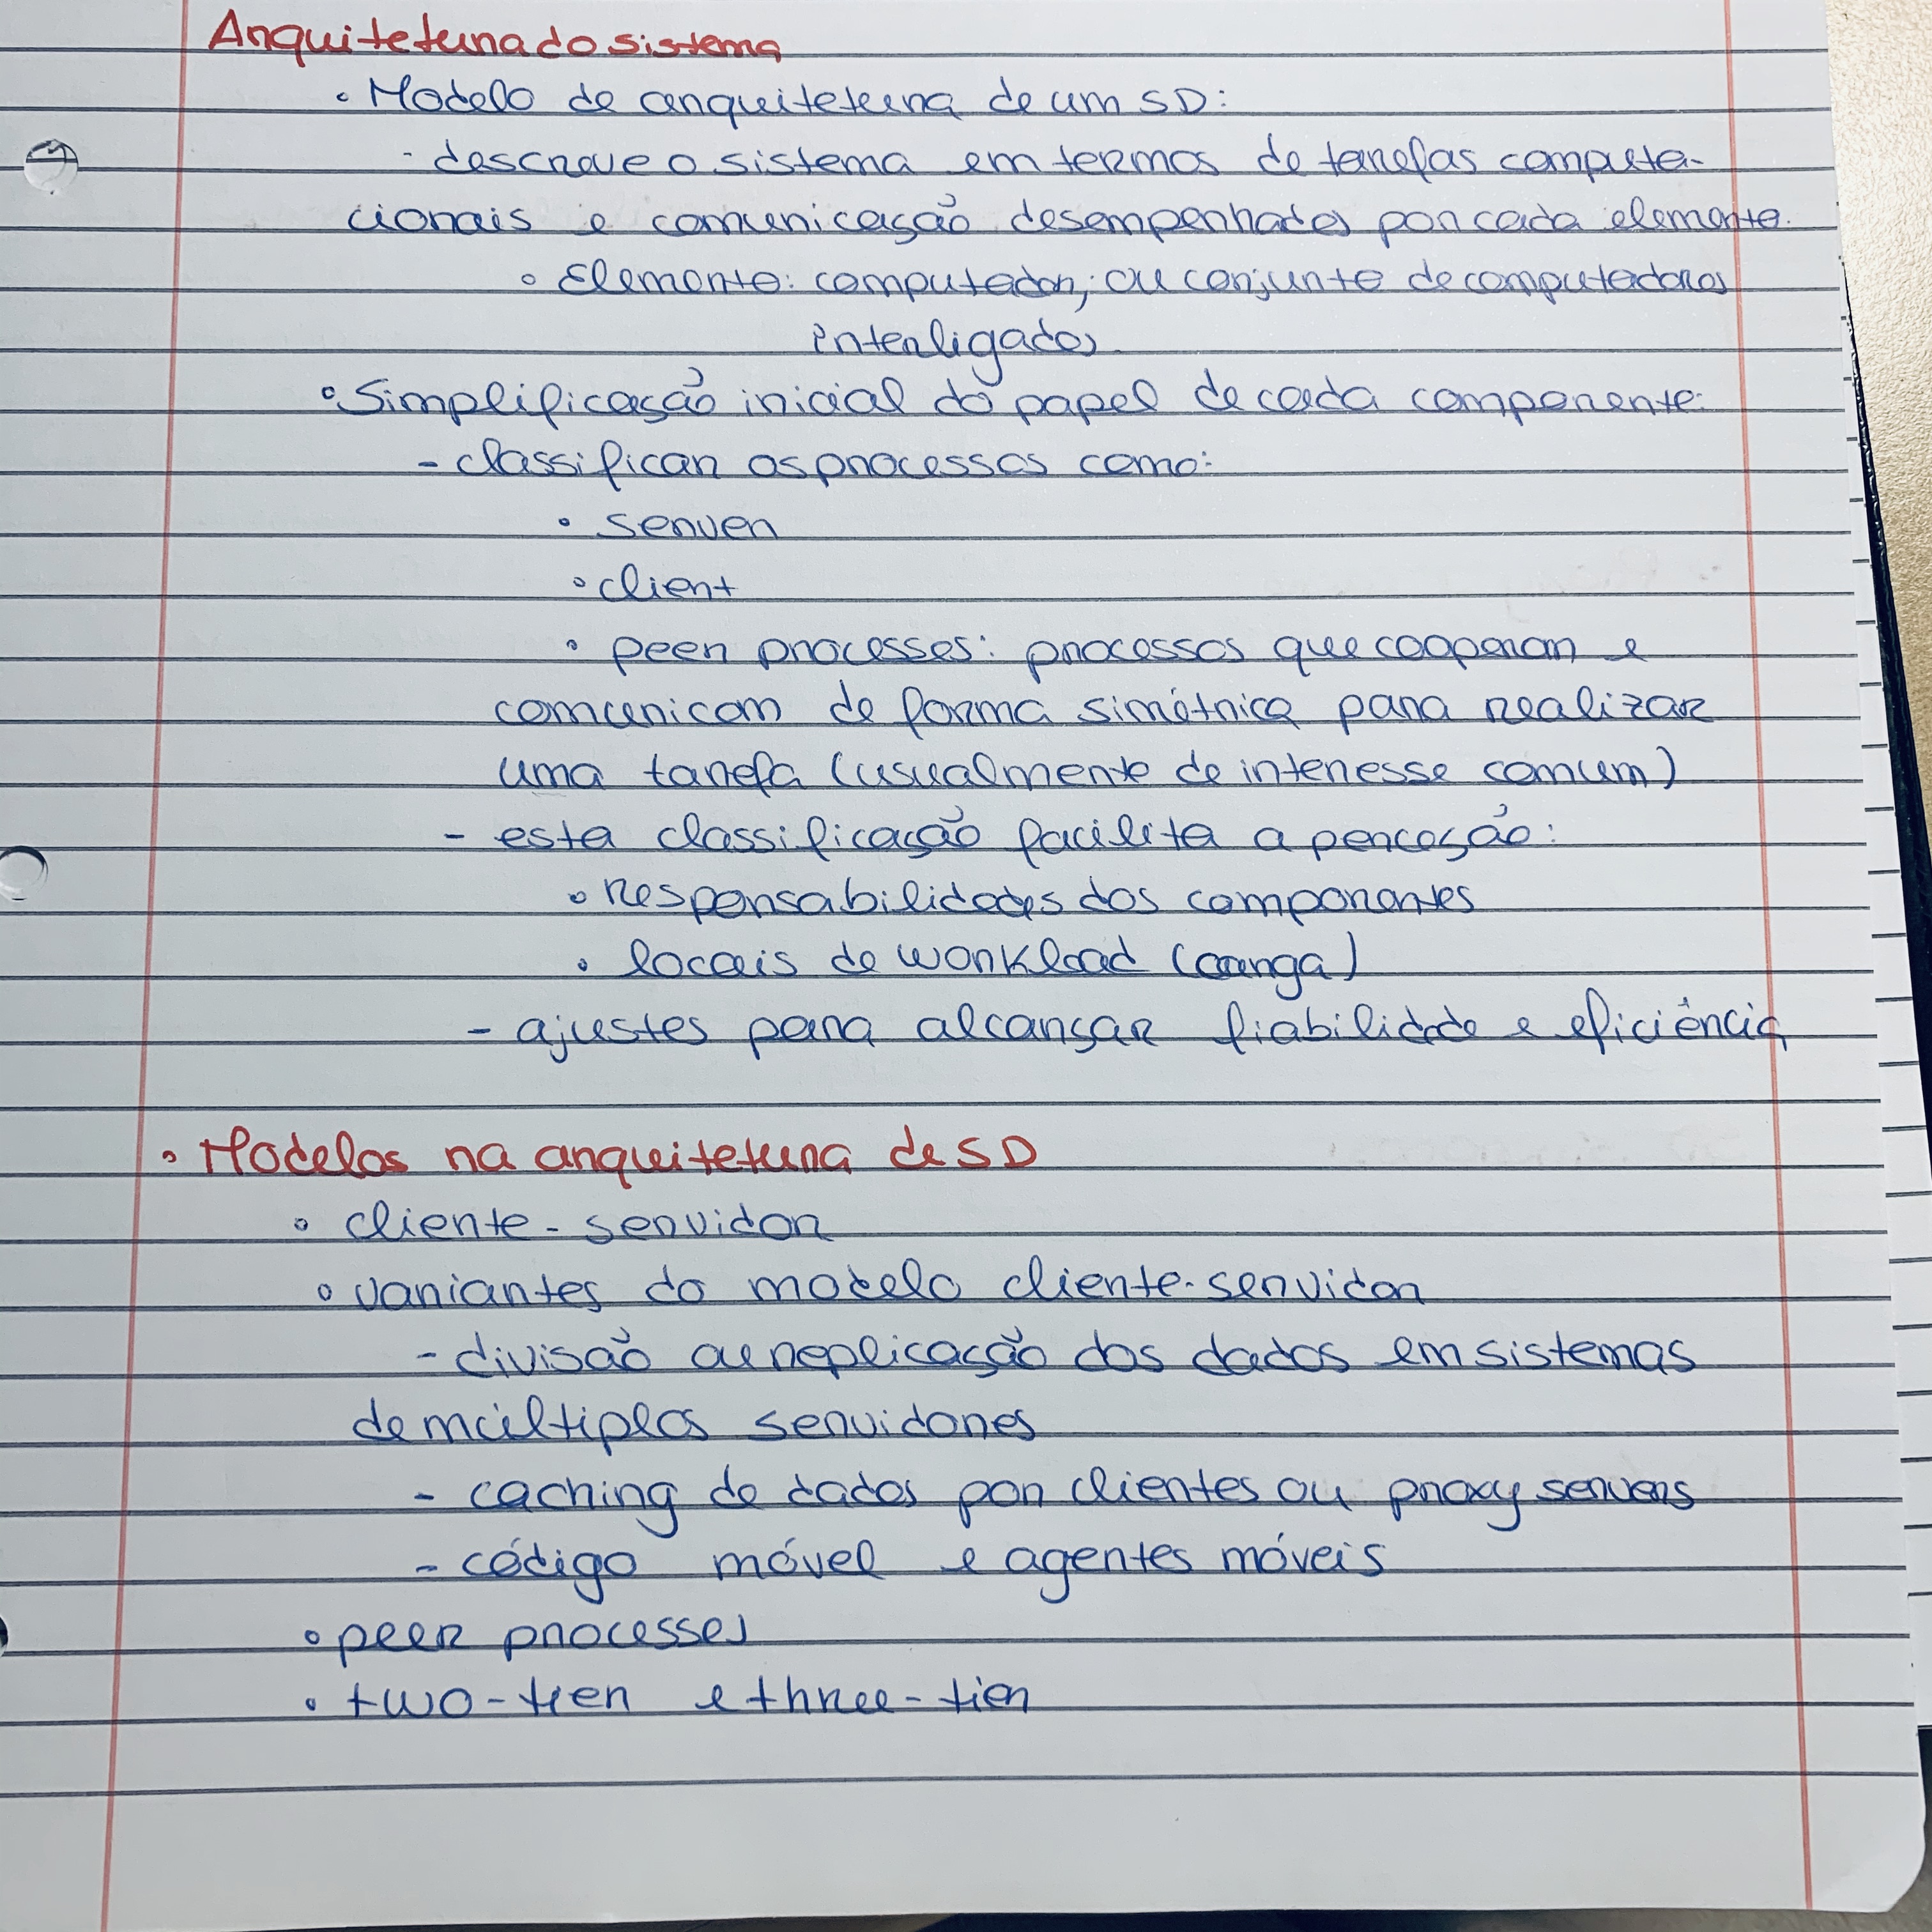 Arquitetura do sistema
• Modelo de arquitetura de um SD:
- descreve o sistema em termos de tarefas computa-
cionais e comunicação desempenhados por cada elemento.
• Elemento: computador, ou conjunto de computadores
interligados
• Simplificação inicial do papel de cada componente:
- classificar os processos como:
• server
• client
• peer processes: processos que cooperam e
comunicam de forma simétrica para realizar
uma tarefa (usualmente de interesse comum)
- esta classificação facilita a perceção:
• Responsabilidades dos componentes
• locais de workload (carga)
- ajustes para alcançar fiabilidade e eficiência
• Modelos na arquitetura de SD
• cliente-servidor
• variantes do modelo cliente-servidor
- divisão ou replicação dos dados em sistemas
de múltiplos servidores
- caching de dados por clientes ou proxy servers
- código móvel e agentes móveis
• peer processes
• two-tier e three-tier